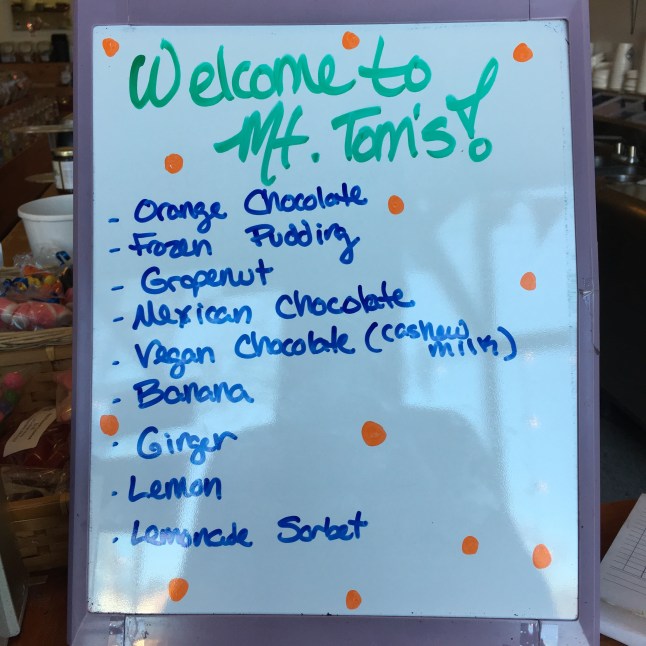 Welcome to
Mt. Tom's!
- Orange Chocolate
- Frozen Pudding
- Grapenut
- Mexican Chocolate
- Vegan Chocolate (cashew
milk)
- Banana
- Ginger
- Lemon
- Lemonade Sorbet